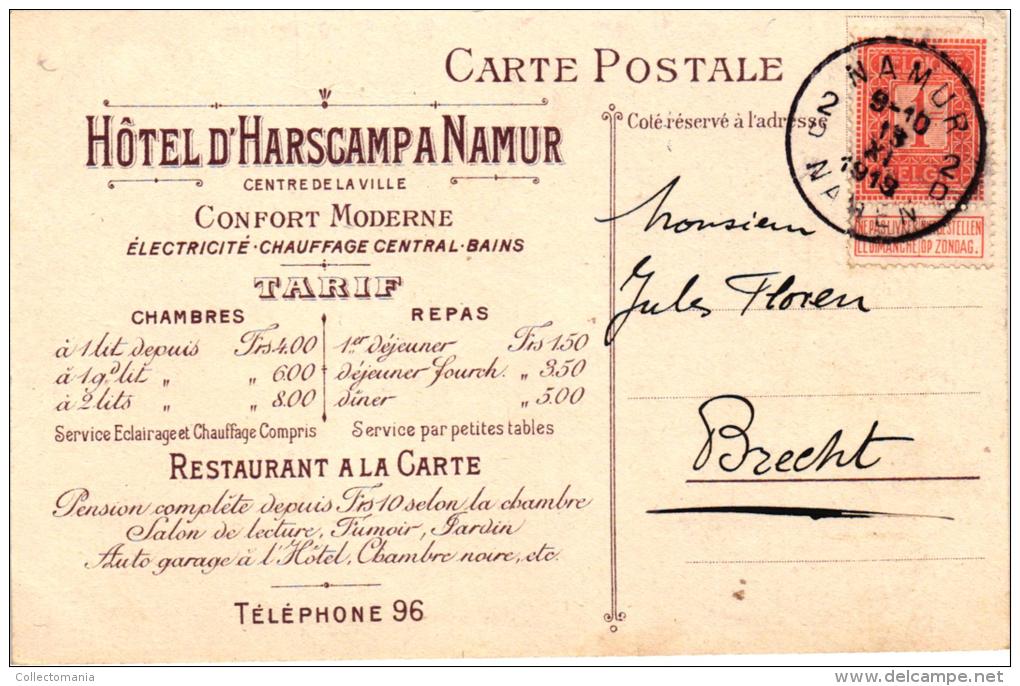 CARTE POSTALE
HÔTEL D'HARSCAMPA NAMUR
CENTRE DE LA VILLE
CONFORT MODERNE
ÉLECTRICITÉ·CHAUFFAGE CENTRAL·BAINS
TARIF
CHAMBRES
à 1 lit depuis Frs 4.00
à 1 gd lit " " 6.00
à 2 lits " " 8.00
Service Eclairage et Chauffage Compris
REPAS
1er déjeuner Frs 1.50
déjeuner fourch. " 3.50
dîner " 5.00
Service par petites tables
RESTAURANT A LA CARTE
Pension complète depuis Frs 10 selon la chambre
Salon de lecture, Fumoir, Jardin
Auto garage à l'Hôtel, Chambre noire, etc.
TÉLÉPHONE 96
Coté réservé à l'adresse
Monsieur
Jules Floren
Brecht
NAMUR
2D 2D
9-10
13
XI
1913
NAMEN
1
BELGI
NE PAS LIVRER BESTELLEN
LE DIMANCHE OP ZONDAG.
Collectomania
www.delcampe.net